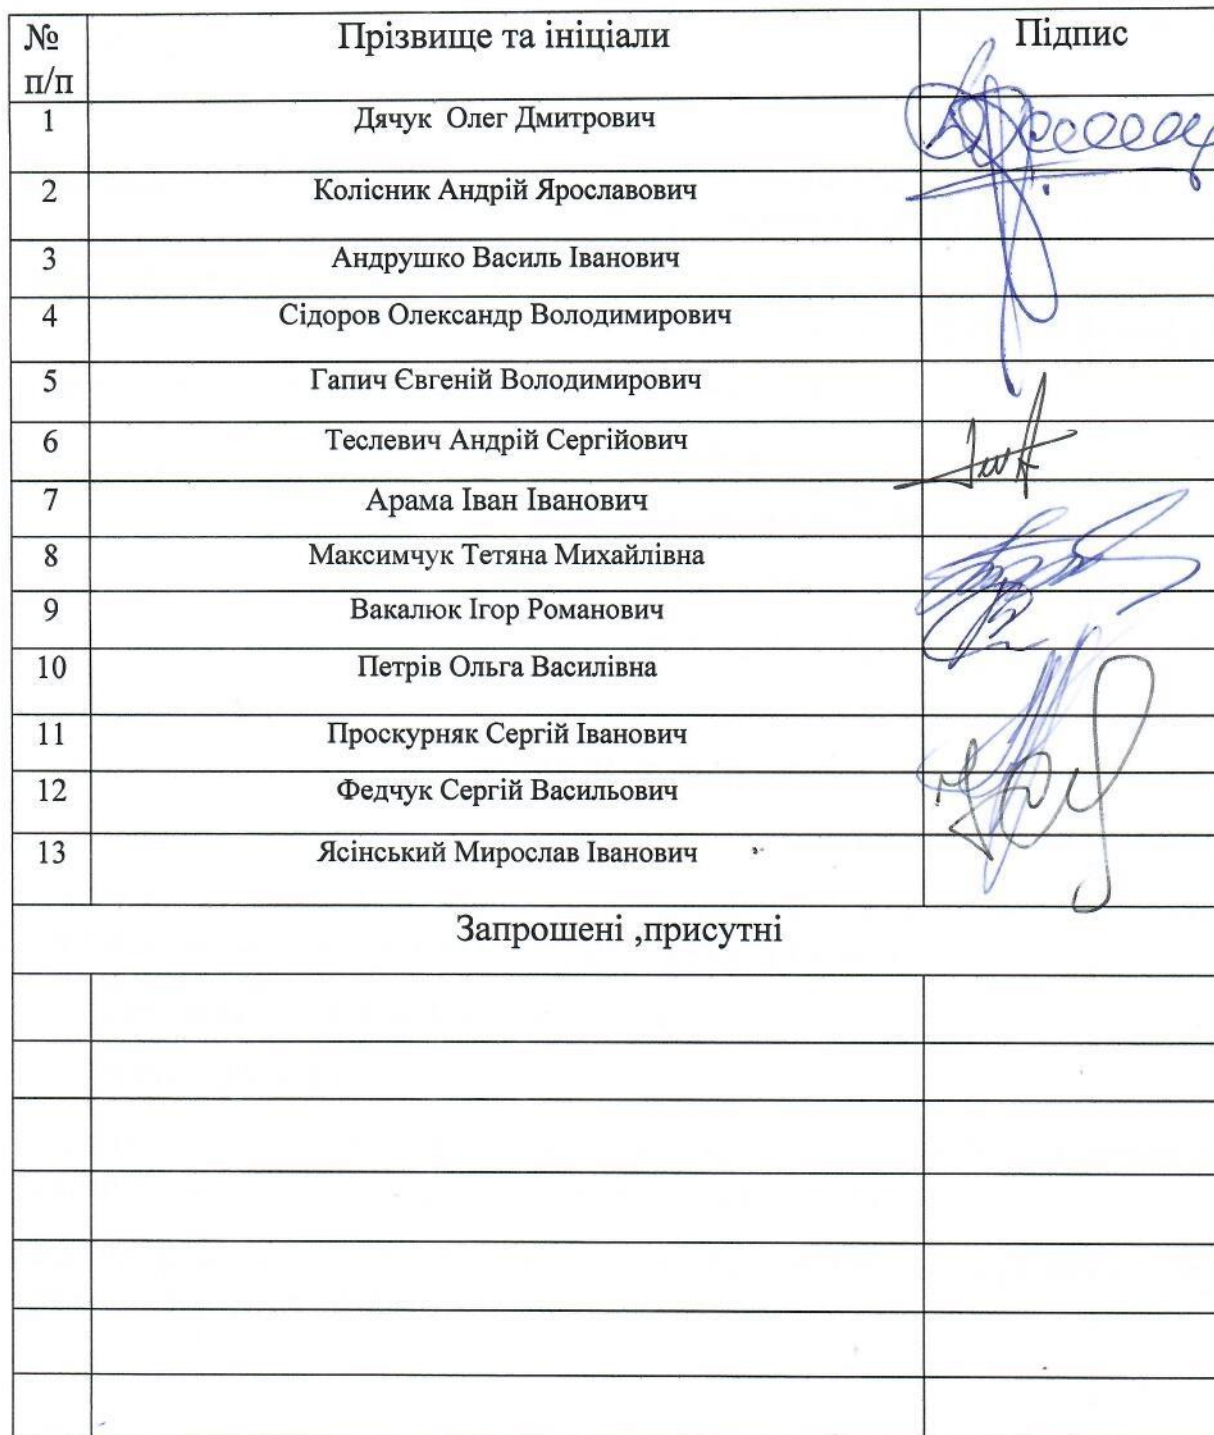 № п/п Прізвище та ініціали Підпис
1 Дячук Олег Дмитрович
2 Колісник Андрій Ярославович
3 Андрушко Василь Іванович
4 Сідоров Олександр Володимирович
5 Гапич Євгеній Володимирович
6 Теслевич Андрій Сергійович
7 Арама Іван Іванович
8 Максимчук Тетяна Михайлівна
9 Вакалюк Ігор Романович
10 Петрів Ольга Василівна
11 Проскурняк Сергій Іванович
12 Федчук Сергій Васильович
13 Ясінський Мирослав Іванович
Запрошені ,присутні